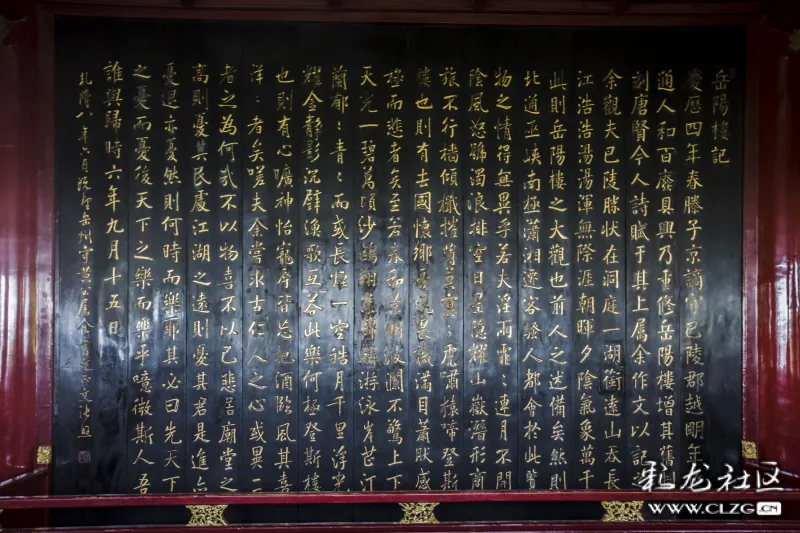 岳陽樓記
慶曆四年春滕子京謫守巴陵郡越明年
通人和百廢具興乃重修岳陽樓增其舊
刻唐賢今人詩賦于其上屬余作文以記
余觀夫巴陵勝狀在洞庭一湖銜遠山吞長
江浩浩湯湯渾無際涯朝暉夕陰氣象萬千
此則岳陽樓之大觀也前人之述備矣然則
北通巫峽南極瀟湘遷客騷人都會於此覽
物之情得無異乎若夫淫雨霏:連月不開
陰風怒號濁浪排空日星隱耀山嶽潛形商
旅不行檣傾檝摧薄暮冥:虎嘯猿啼登斯
樓也則有去國懷鄉憂讒畏譏滿目蕭然感
極而悲者矣至若春和景明波瀾不驚上下
天光一碧萬頃沙鷗翔集錦鱗游泳岸芷汀
蘭郁:青:而或長煙一空皓月千里浮光
耀金靜影沉璧漁歌互荅此樂何極登斯樓
也則有心曠神怡寵辱皆忘把酒臨風其喜
洋:者矣嗟夫余嘗求古仁人之心或異二
者之為何哉不以物喜不以己悲居廟堂之
高則憂其民處江湖之遠則憂其君是進亦
憂退亦憂然則何時而樂耶其必曰先天下
之憂而憂後天下之樂而樂乎噫微斯人吾
誰與歸時六年九月十五日
乾隆八年六月岳州守黃屬余書張照
彩龙社区
WWW.CLZG.CN